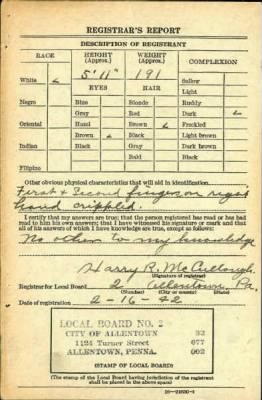 REGISTRAR'S REPORT
DESCRIPTION OF REGISTRANT
RACE HEIGHT (Approx.) WEIGHT (Approx.) COMPLEXION
5' 11" 191
White ✓ Sallow
EYES HAIR Light
Negro Blue Blonde Ruddy
Gray Red Dark ✓
Oriental Hazel Brown ✓ Freckled
Brown ✓ Black Light brown
Indian Black Gray Dark brown
Bald Black
Filipino
Other obvious physical characteristics that will aid in identification
First & Second fingers on right
hand crippled.
I certify that my answers are true; that the person registered has read or has had
read to him his own answers; that I have witnessed his signature or mark and that
all of his answers of which I have knowledge are true, except as follows:
No other to my knowledge
Harry R. McCullough
(Signature of registrar)
Registrar for Local Board 2 Allentown, Pa.
(Number) (City or county) (State)
Date of registration 2-16-42
LOCAL BOARD NO. 2
CITY OF ALLENTOWN 32
1124 Turner Street 077
ALLENTOWN, PENNA. 002
(STAMP OF LOCAL BOARD)
(The stamp of the Local Board having jurisdiction of the registrant
shall be placed in the above space)